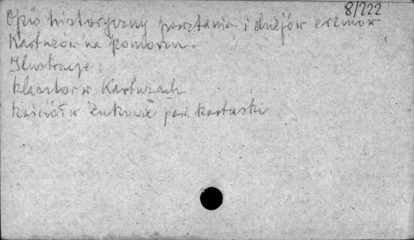 8/222
Opis historyczny powstania i dziejów eremów
Kartuzów na Pomorzu.
Ilustracje:
klasztor w Kartuzach
kościół w Żukowie pow. kartuski